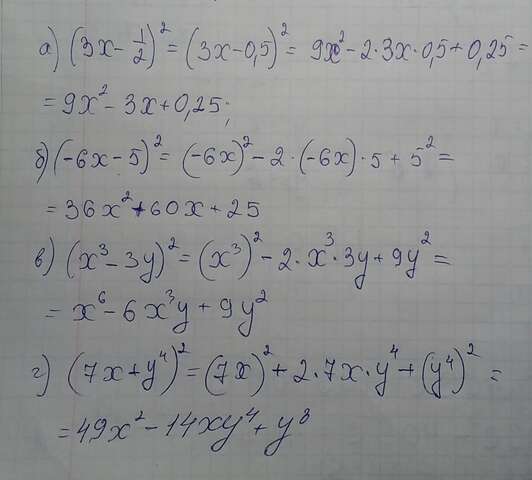 а) (3x - 1/2)² = (3x - 0,5)² = 9x² - 2·3x·0,5 + 0,25 =
= 9x² - 3x + 0,25;
б) (-6x - 5)² = (-6x)² - 2·(-6x)·5 + 5² =
= 36x² + 60x + 25
в) (x³ - 3y)² = (x³)² - 2·x³·3y + 9y² =
= x⁶ - 6x³y + 9y²
г) (7x + y⁴)² = (7x)² + 2·7x·y⁴ + (y⁴)² =
= 49x² - 14xy⁴ + y⁸